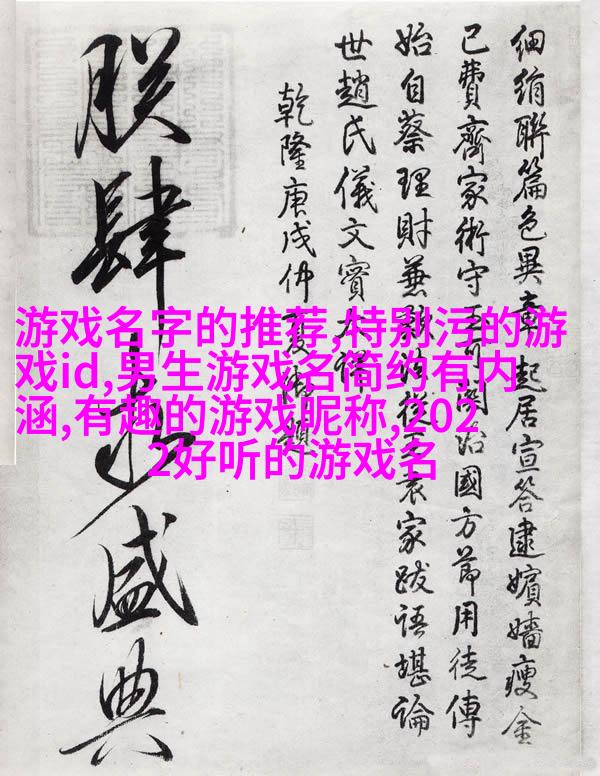 游戏名字的推荐,特别污的游
戏id,男生游戏名简约有内
涵,有趣的游戏昵称,202
2好听的游戏名
細絹聯篇色異章起居宣答逮嬪嬙瘦金
已費齊家術守王可關治國方節用徒傳
始自蔡理財兼從家跋語堪論
世趙氏儀文賓
乾隆庚戌仲夏御題
肆盛典